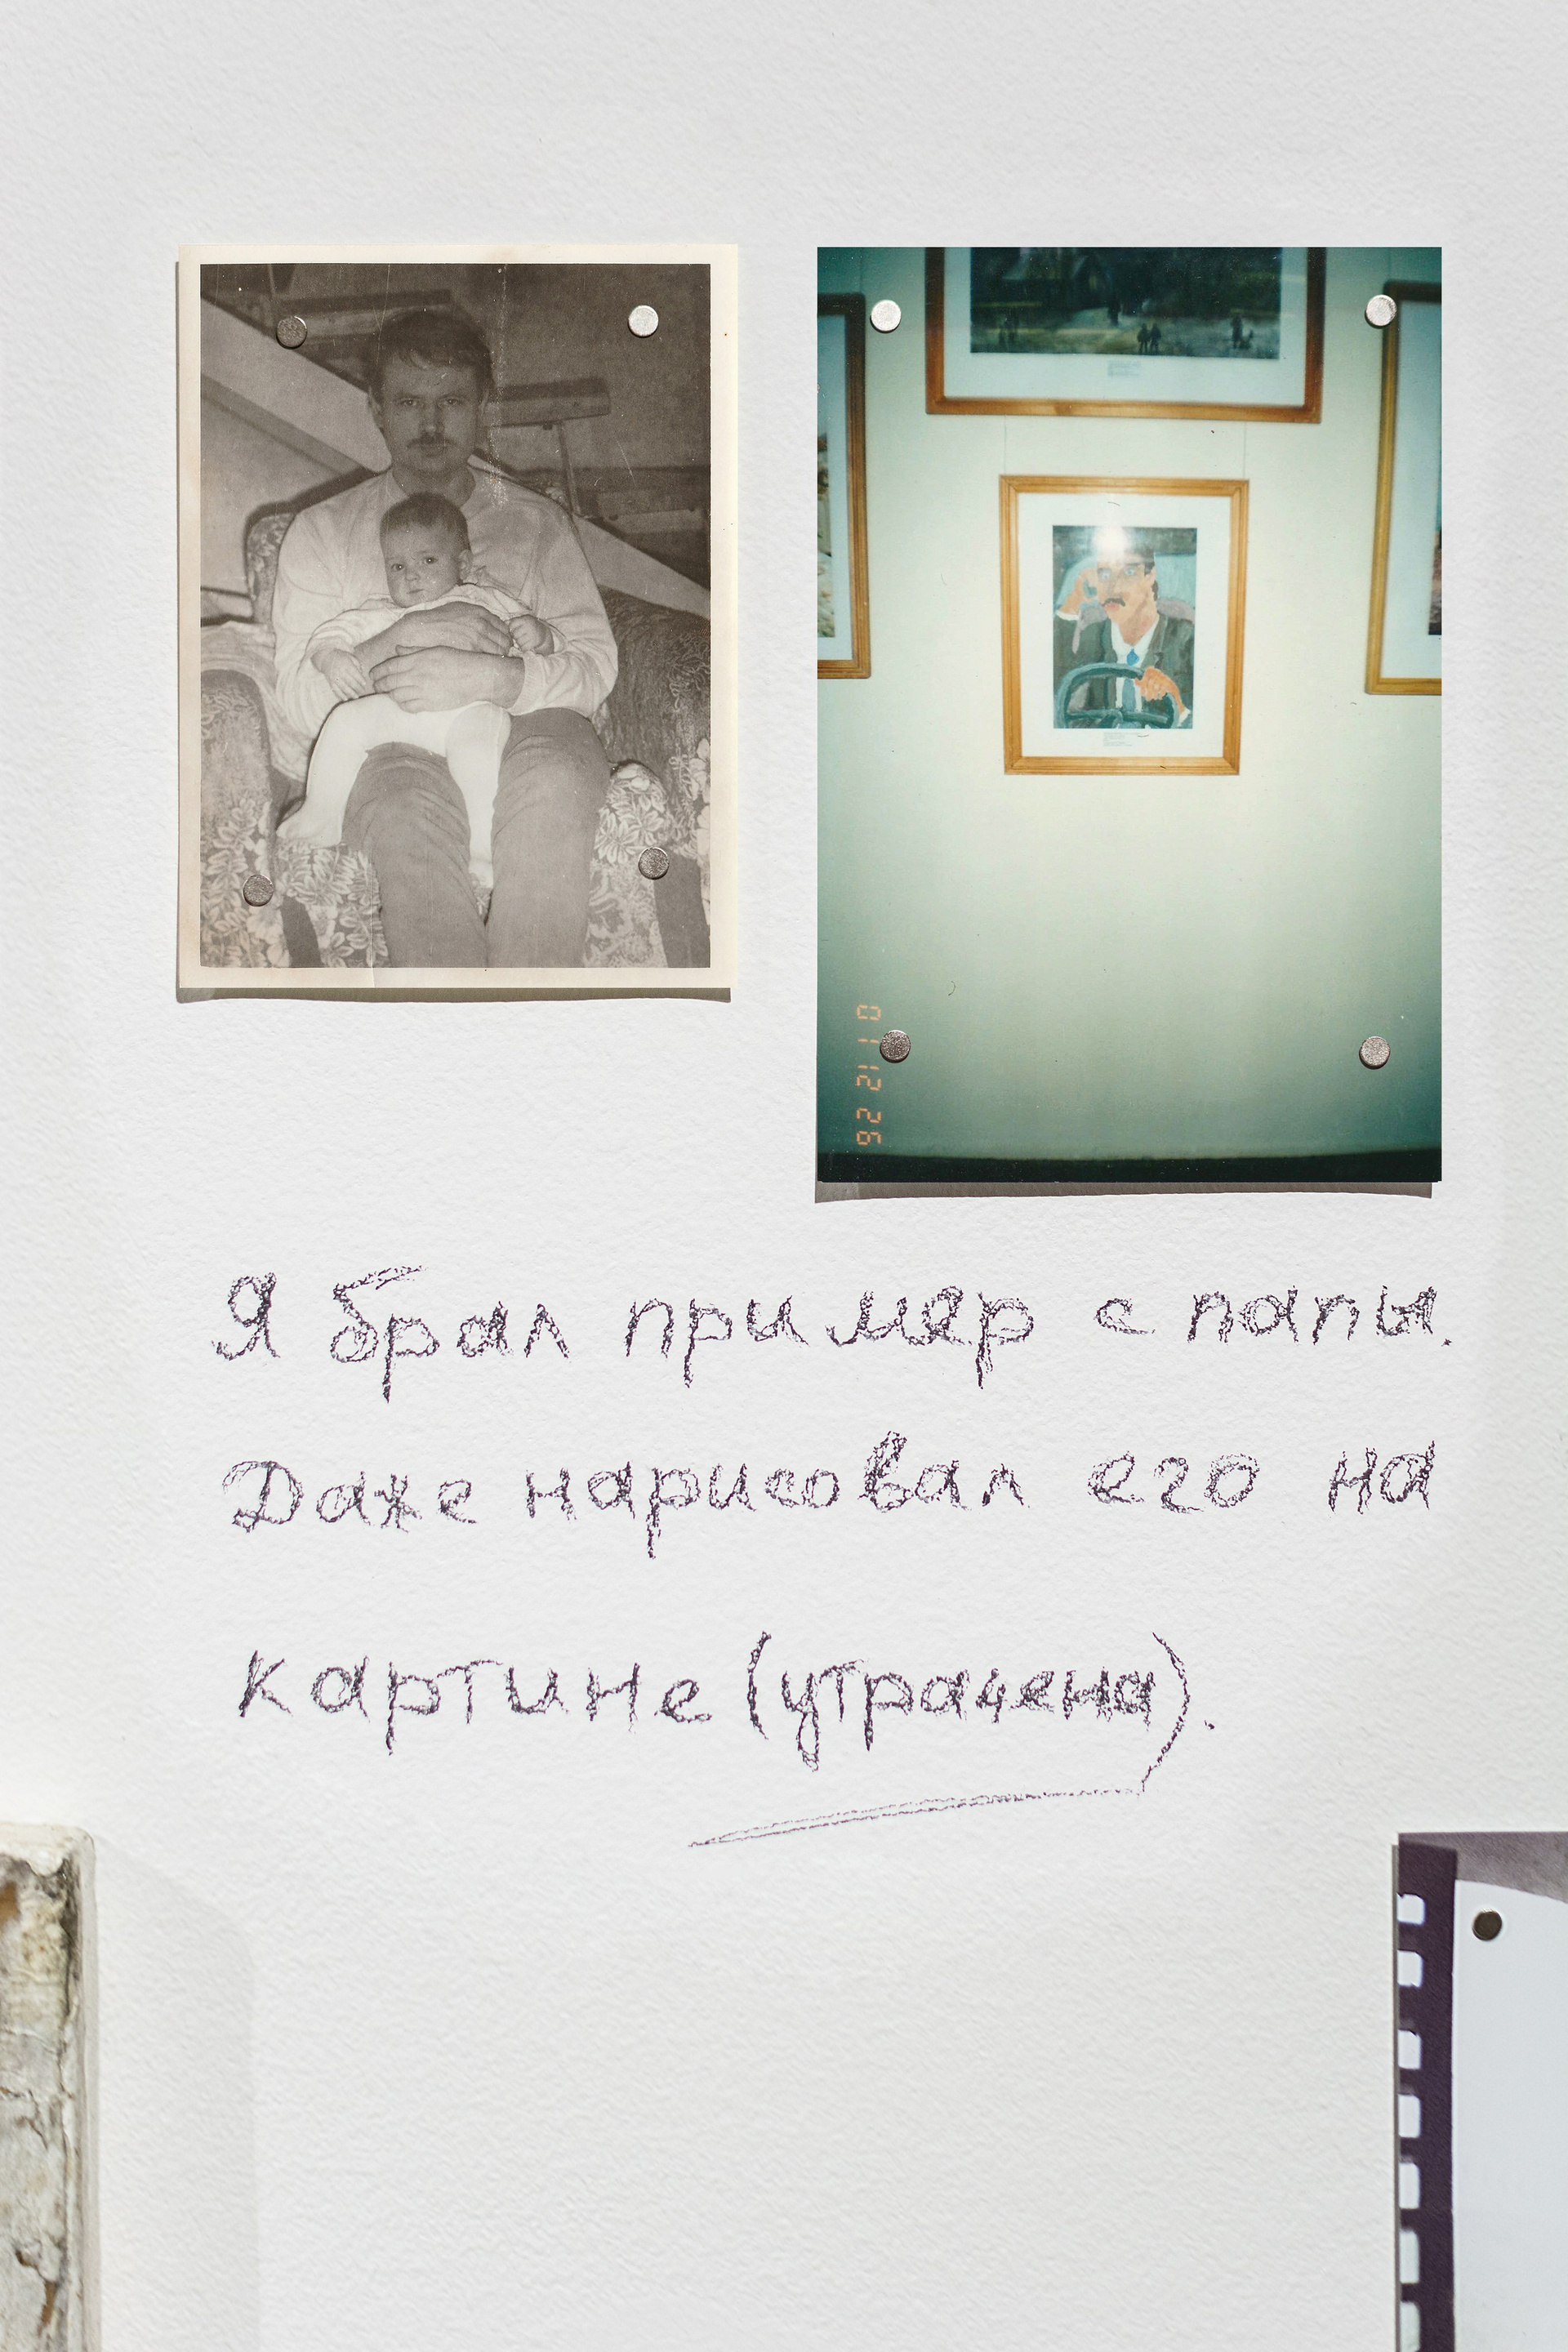 01 12 26
Я брал пример с папы.
Даже нарисовал его на
картине (утрачена).